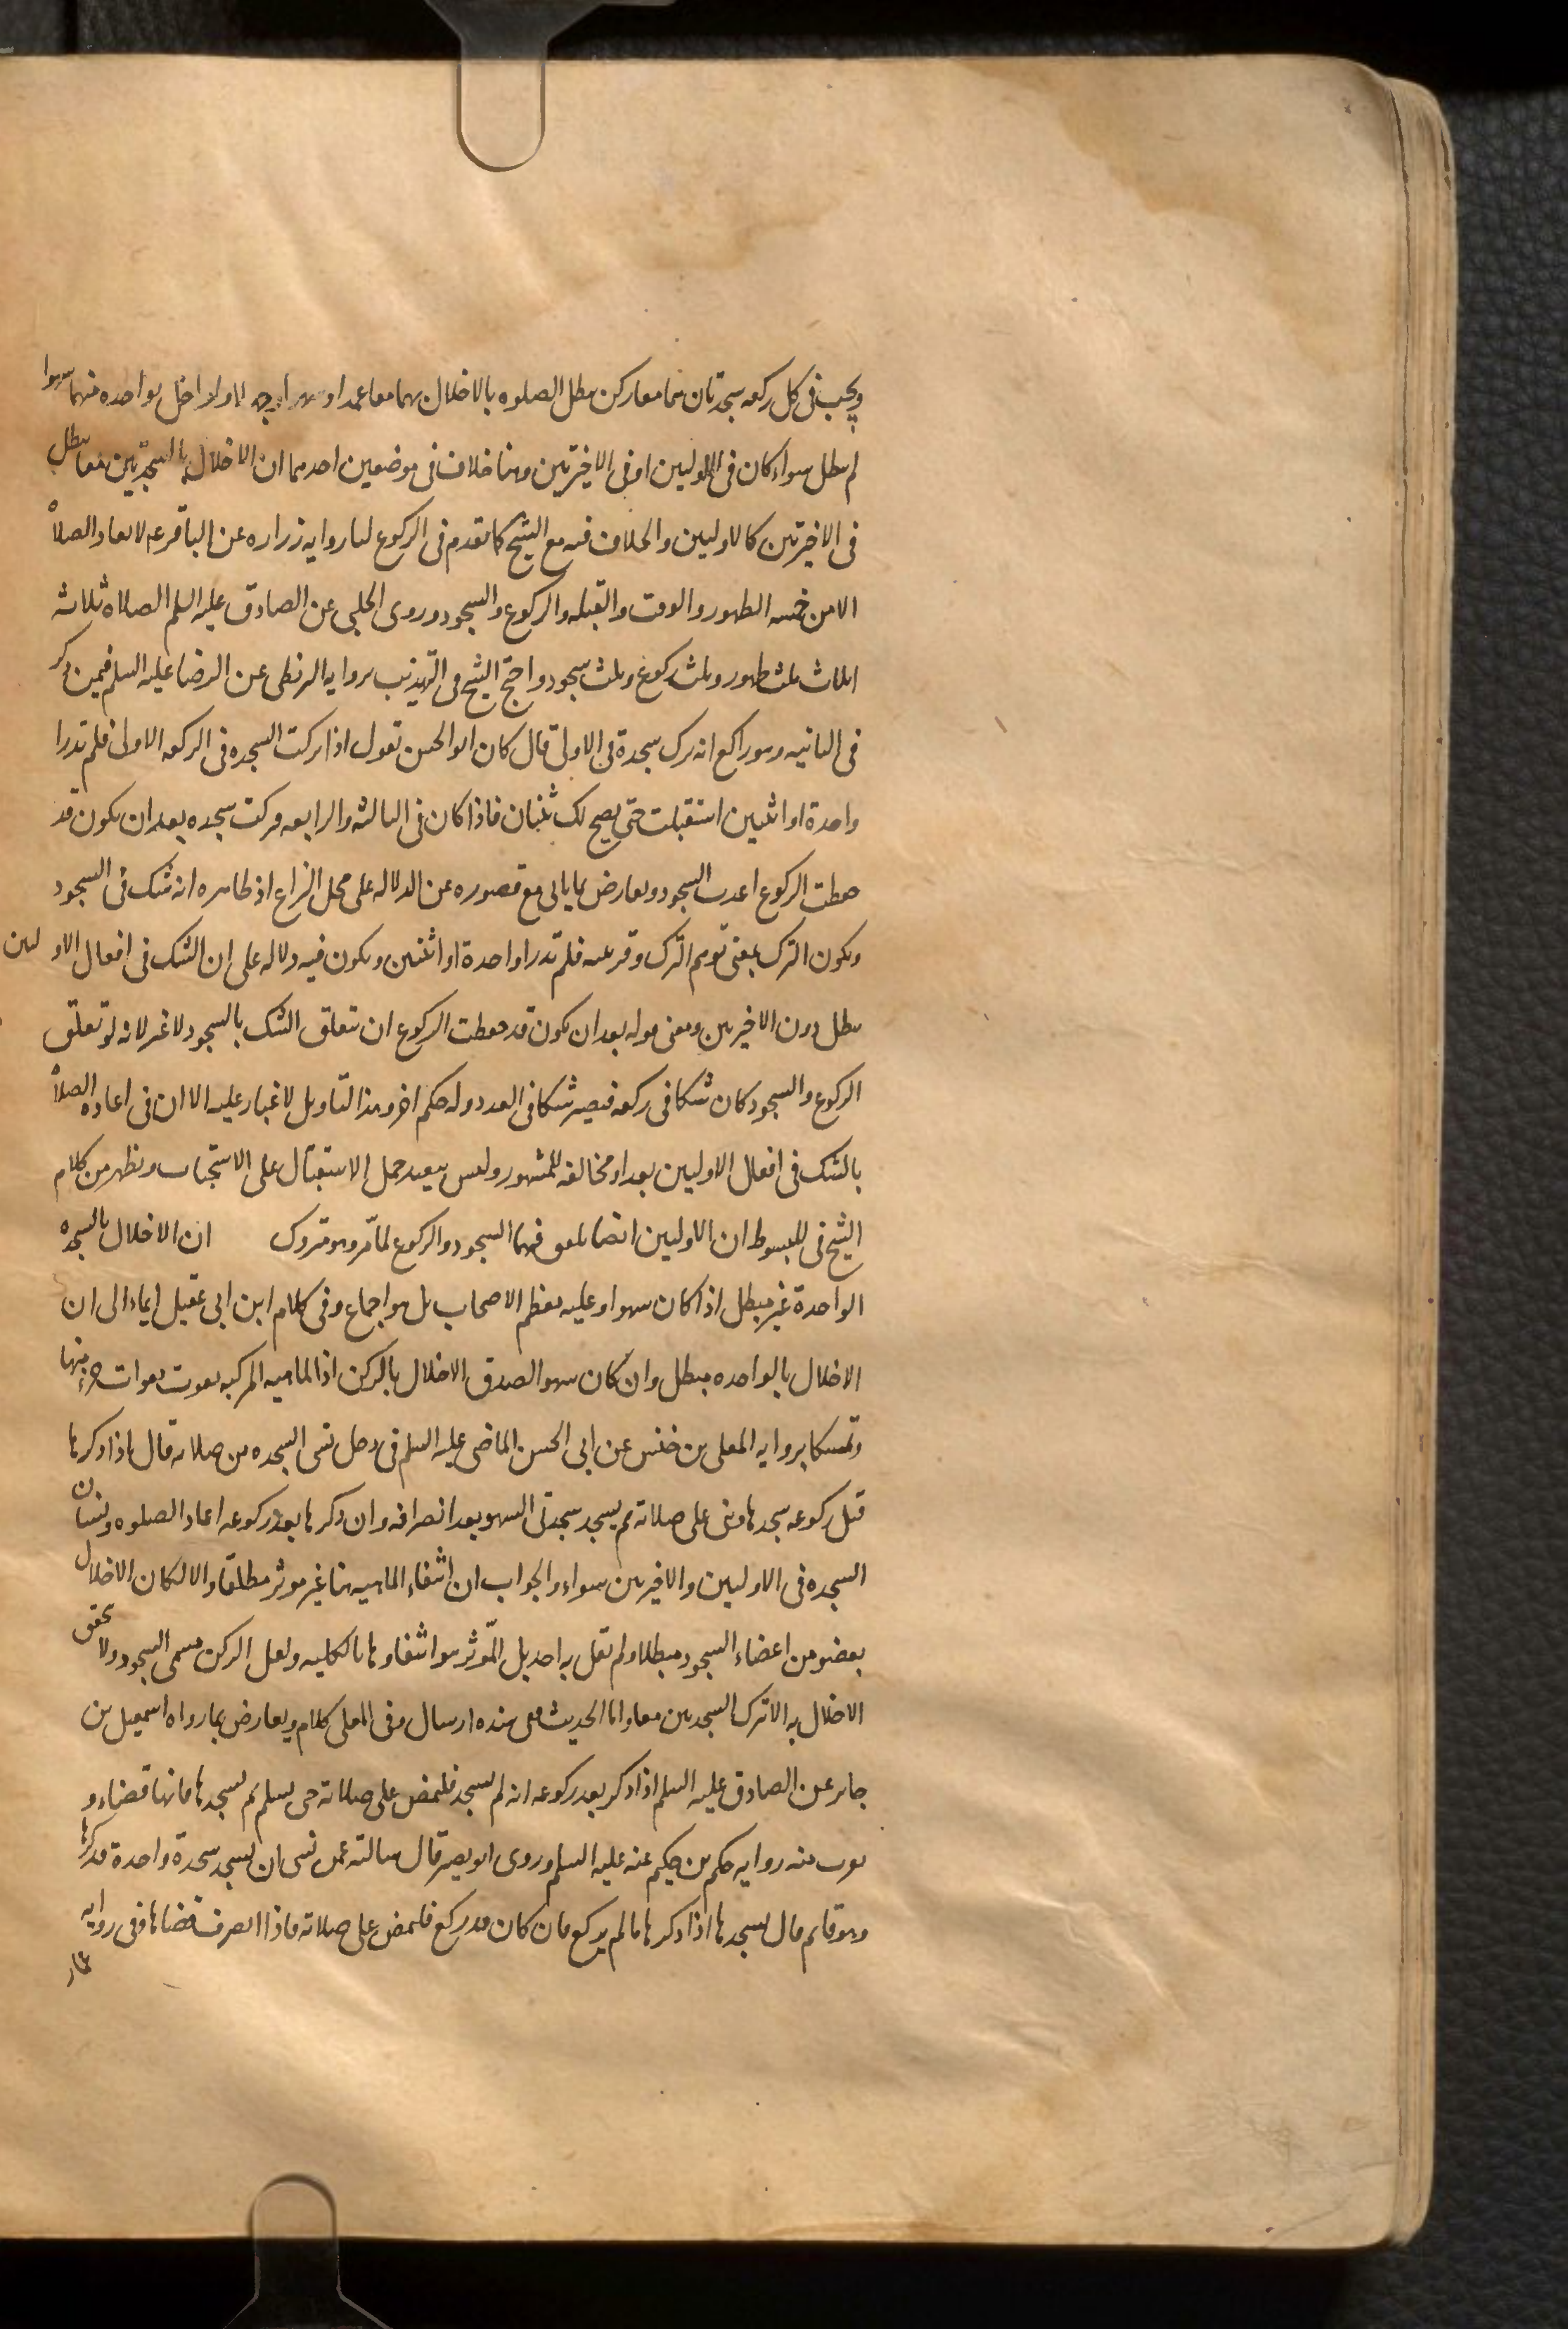 ويجب فى كل ركعه سجدتان هما معا ركن تبطل الصلوه بالاخلال بهما معا عمدا او سهوا ولو اخل بواحده منهما سهوا
لم تبطل سواء كان فى الاوليين او فى الاخيرتين وهنا خلاف فى موضعين احدهما ان الاخلال بالسجدتين معا مبطل
فى الاخيرتين كالاوليين والخلاف فيه مع الشيخ كما تقدم فى الركوع لنا روايه زراره عن الباقر ع لا تعاد الصلاة
الا من خمسه الطهور والوقت والقبله والركوع والسجود وروى الحلبى عن الصادق عليه السلم الصلاه ثلاثه
اثلاث ثلث طهور وثلث ركوع وثلث سجود واحتج الشيخ فى التهذيب بروايه البزنطى عن الرضا عليه السلم فيمن ذكر
فى الثانيه وهو راكع انه ترك سجدة فى الاولى قال كان ابو الحسن يقول اذا تركت السجده فى الركعه الاولى فلم تدر ا
واحدة او اثنتين استقبلت حتى يصح لك ثنتان فاذا كان فى الثالثه والرابعه فتركت سجده بعد ان تكون قد
حفظت الركوع اعدت السجود ويعارض بما ياتى مع قصوره عن الدلاله على محل النزاع اذ ظاهره انه شك فى السجود
ويكون الترك بمعنى توهم الترك وقرينته فلم تدر ا واحدة او اثنتين ويكون فيه دلاله على ان الشك فى افعال الاوليين
يبطل دون الاخيرتين ومعنى قوله بعد ان تكون قد حفظت الركوع ان تعلق الشك بالسجود لا غير لانه لو تعلق
الركوع والسجود كان شكا فى ركعه فيصير شكا فى العدد وله حكم اخر وهذا التاويل لا غبار عليه الا ان فى اعاده الصلاة
بالشك فى افعال الاوليين بعدا ومخالفه للمشهور وليس ببعيد حمل الاستقبال على الاستحباب ويظهر من كلام
الشيخ فى المبسوط ان الاوليين ايضا يلفق فيهما السجود والركوع لما مرّ وهو متروك ان الاخلال بالسجده
الواحدة غير مبطل اذا كان سهوا وعليه معظم الاصحاب بل هو اجماع وفى كلام ابن ابى عقيل ايماء الى ان
الاخلال بالواحده مبطل وان كان سهوا لصدق الاخلال بالركن اذ الماهيه المركبه تفوت بفوات جزء منها
وتمسكا بروايه المعلى بن خنيس عن ابى الحسن الماضى عليه السلم فى رجل نسى السجده من صلاته قال اذا ذكرها
قبل ركوعه سجدها وبنى على صلاته ثم يسجد سجدتى السهو بعد انصرافه وان ذكرها بعد ركوعه اعاد الصلوه ونسيان
السجده فى الاوليين والاخيرتين سواء والجواب ان انتفاء الماهيه هنا غير موثر مطلقا والا لكان الاخلال
بعضو من اعضاء السجود مبطلا ولم يقل به احد بل المؤثر هو انتفاوها بالكليه ولعل الركن مسمى السجود ولا يتحقق
الاخلال به الا بترك السجدتين معا واما الحديث ففى سنده ارسال وفى المعلى كلام ويعارض بما رواه اسمعيل بن
جابر عن الصادق عليه السلم اذا ذكر بعد ركوعه انه لم يسجد فليمض على صلاته حتى يسلم ثم يسجدها فانها قضاء و
يقرب منه روايه حكم بن حكيم عنه عليه السلم وروى ابو بصير قال سالته عمن نسى ان يسجد سجدة واحدة فذكرها
وهو قايم قال يسجدها اذا ذكرها ما لم يركع فان كان قد ركع فليمض على صلاته فاذا انصرف قضاها وفى روايه
عمار